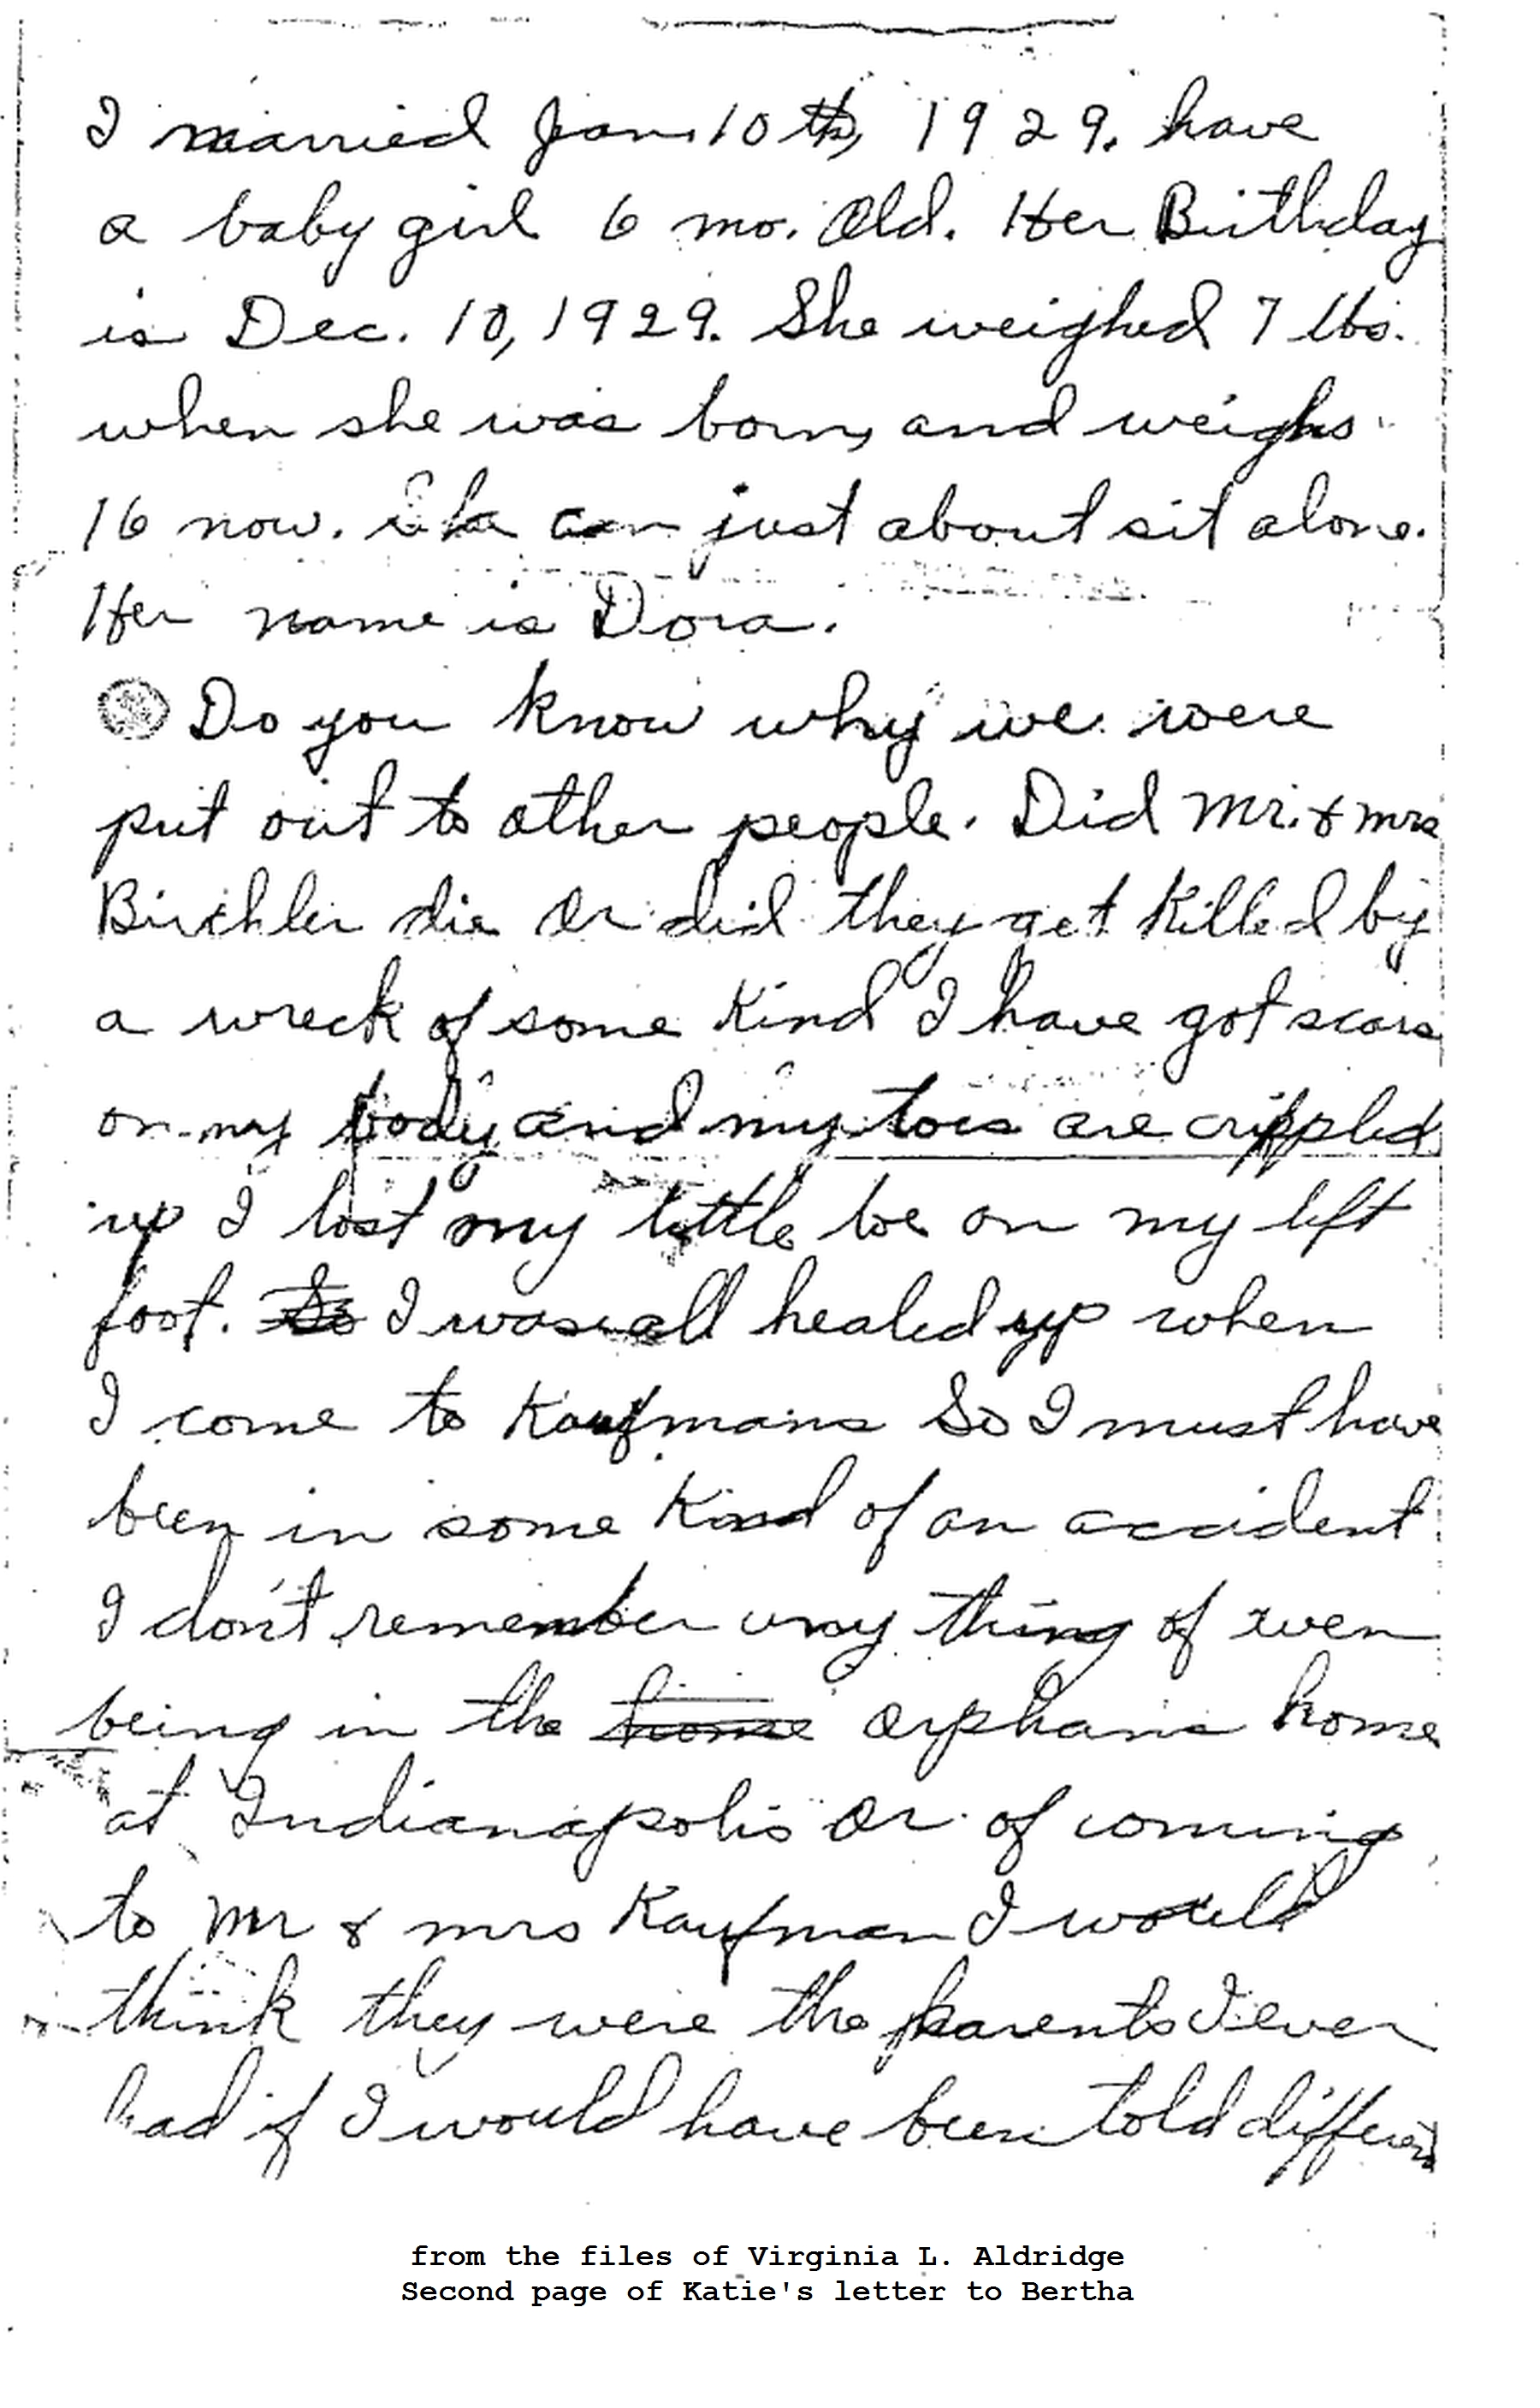 I married Jan 10th, 1929. have
a baby girl 6 mo. Old. Her Birthday
is Dec. 10, 1929. She weighed 7 lbs.
when she was born, and weighs
16 now. She can just about sit alone.
Her name is Dora.
Do you know why we were
put out to other people. Did Mr. & Mrs
Birchler die Or did they get Killed by
a wreck of some Kind I have got scars
on my body and my toes are crippled
up I lost my little toe on my left
foot. So I was all healed up when
I come to Kaufmans So I must have
been in some Kind of an accident
I don't remember any thing of even
being in the home Orphans home
at Indianapolis Or of coming
to Mr & Mrs Kaufman I would
think they were the parents I ever
had if I would have been told different
from the files of Virginia L. Aldridge
Second page of Katie's letter to Bertha